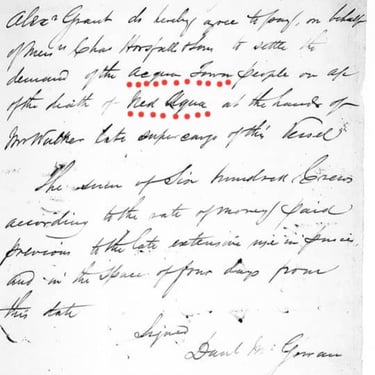 Alexr Grant do hereby agree to pay, on behalf
of Messrs Chas Horsfall & Sons to settle the
demand of the Acqua Town people on a/c
of the death of Ned Aqua at the hands of
Mr Walker late supercargo of this Vessel
The sum of Six hundred Crews
according to the rate of money paid
previous to the late extensive rise in price
and in the space of four days from
this date
Signed
Danl Mc Gowan